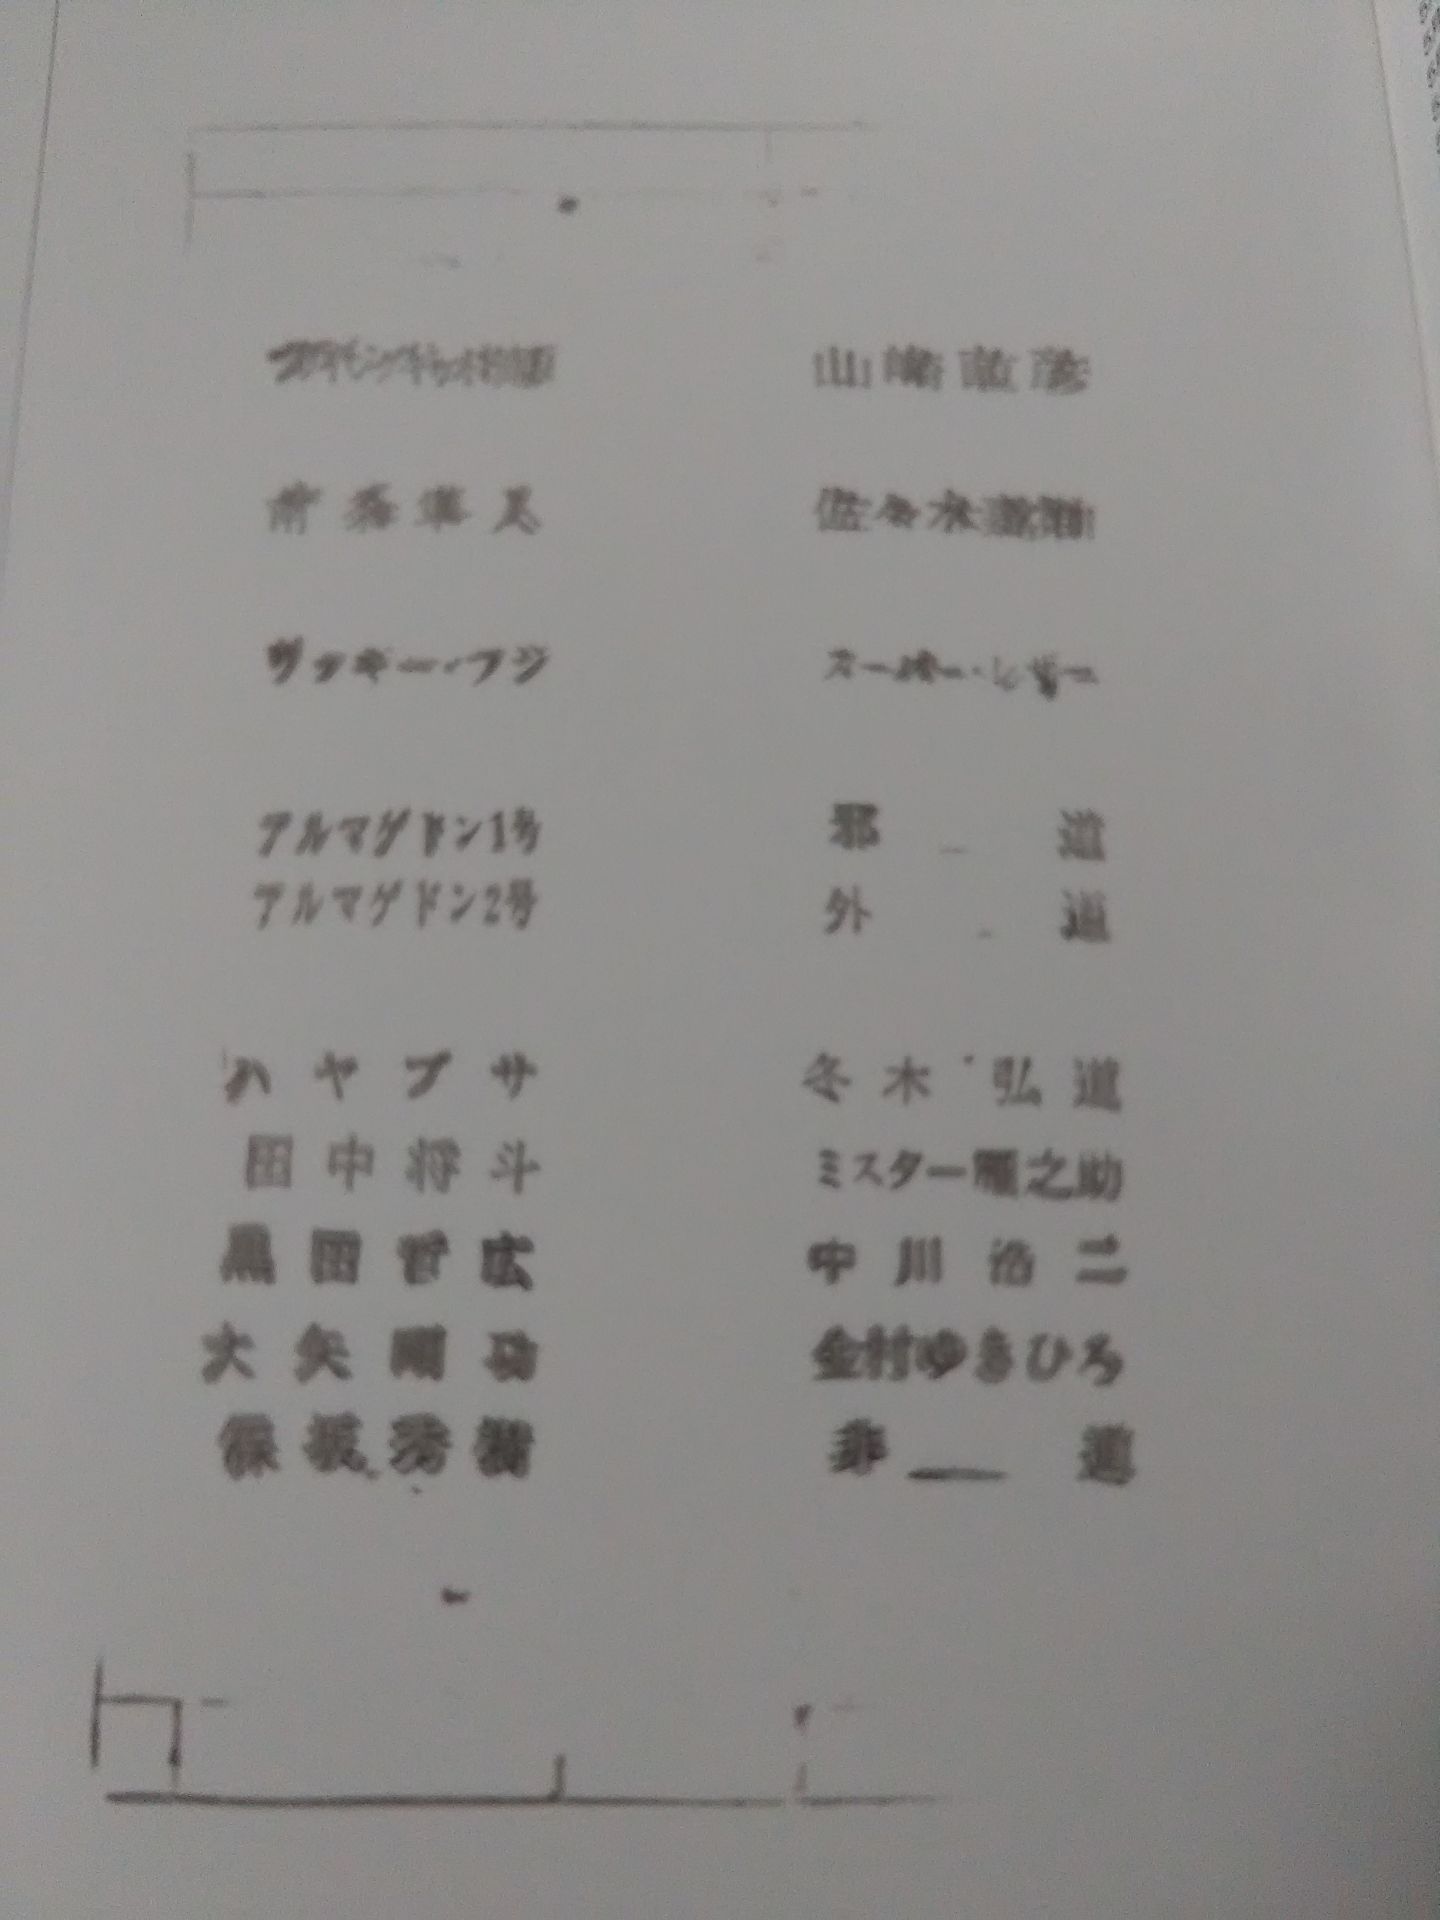 山崎直彦
リッキー・フジ スーパー・レザー
アルマゲドン1号 邪道
アルマゲドン2号 外道
ハヤブサ 冬木弘道
田中将斗 ミスター雁之助
黒田哲広 中川浩二
大矢剛功 金村ゆきひろ
保坂秀樹 非道